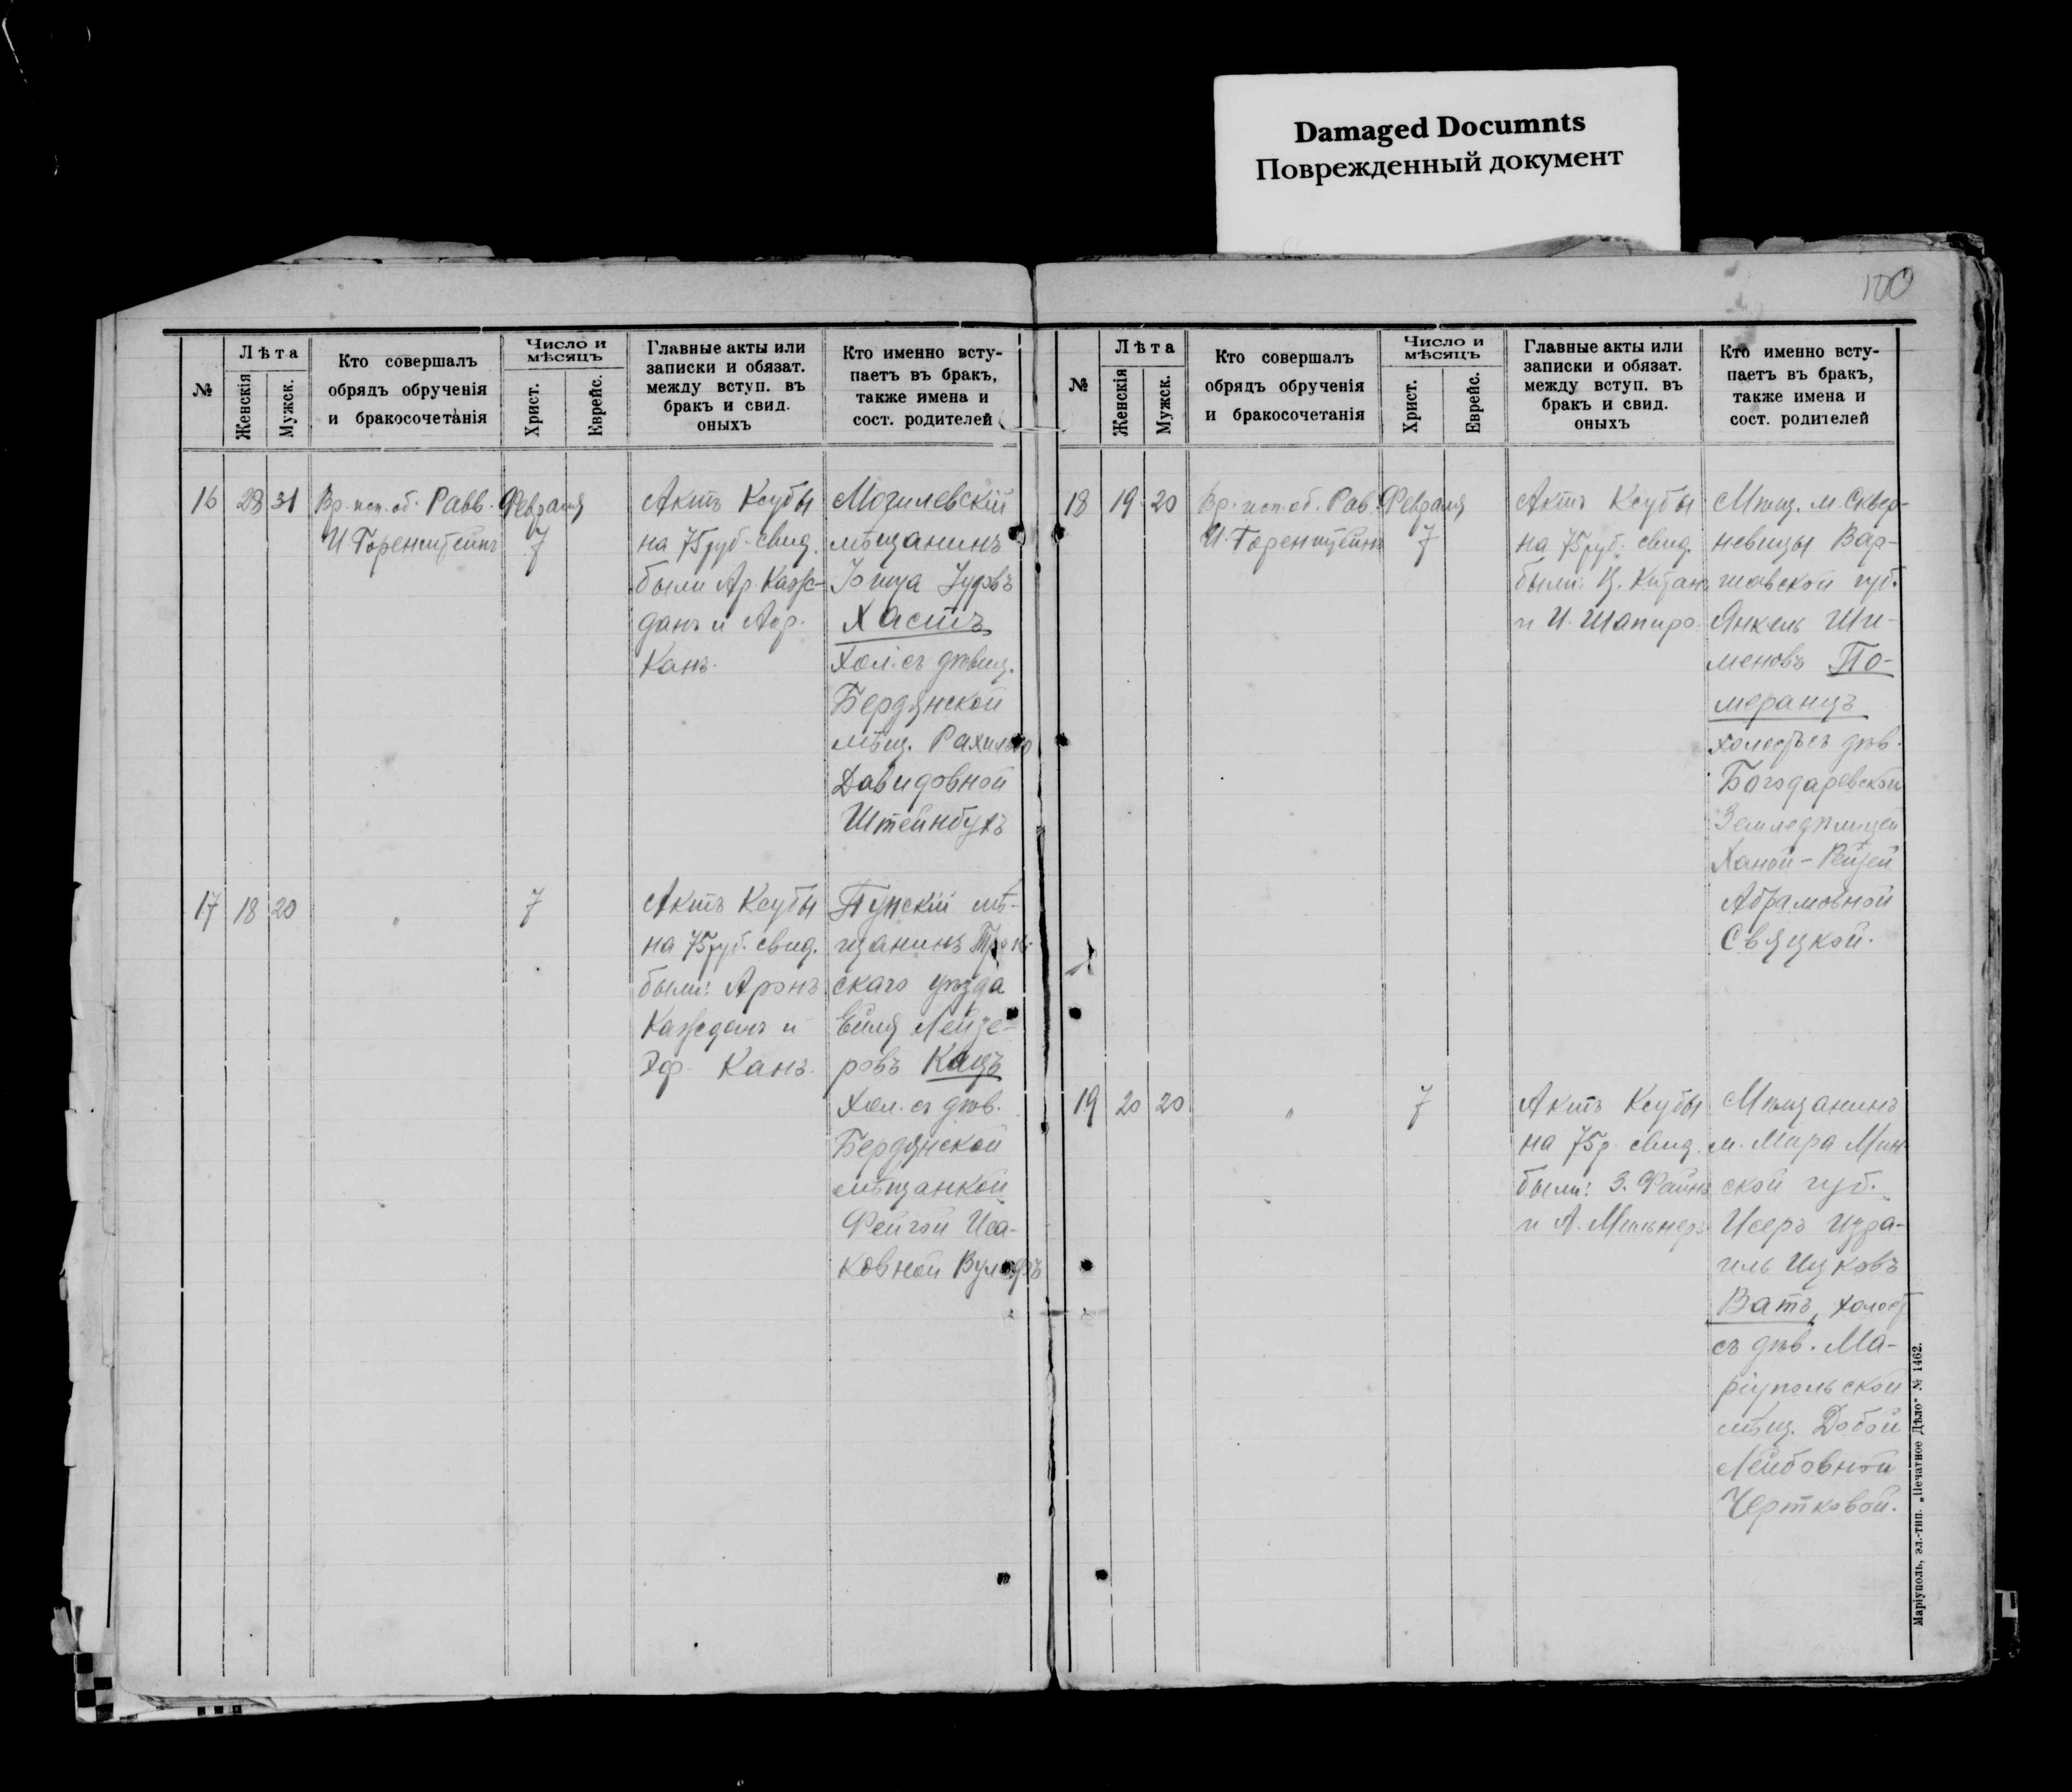 Damaged Documnts
Поврежденный документ
100
№
Лѣта
Женскія
Мужск.
Кто совершалъ
обрядъ обрученія
и бракосочетанія
Число и
мѣсяцъ
Христ.
Еврейс.
Главные акты или
записки и обязат.
между вступ. въ
бракъ и свид.
оныхъ
Кто именно всту-
паетъ въ бракъ,
также имена и
сост. родителей
16 28 31
Вр. исп. об. Равв.
И. Горенштейнъ
Февраля
7
Актъ Ксубы
на 75 руб. свид.
были Ар. Каж-
данъ и Аор.
Канъ.
Могилевскій
мѣщанинъ
Іоша
Хастъ
Хол. съ дѣвиц.
Бердянской
мѣщ. Рахилью
Давидовной
Штейнбухъ
17 18 20
"
7
Актъ Ксубы
на 75 руб. свид.
были: Аронъ
Кажданъ и
Эф. Канъ.
Пунскій мѣ-
щанинъ Трок-
скаго уѣзда
Лейзе-
ровъ Кацъ
Хол. съ дѣв.
Бердянской
мѣщанкой
Фейгой Иса-
ковной Вульфъ
№
Лѣта
Женскія
Мужск.
Кто совершалъ
обрядъ обрученія
и бракосочетанія
Число и
мѣсяцъ
Христ.
Еврейс.
Главные акты или
записки и обязат.
между вступ. въ
бракъ и свид.
оныхъ
Кто именно всту-
паетъ въ бракъ,
также имена и
сост. родителей
18 19 20
Вр. исп. об. Рав.
И. Горенштейнъ
Февраля
7
Актъ Ксубы
на 75 руб. свид.
были: Ц.
и И. Шапиро.
Мѣщ. м. Сквер-
невицы Вар-
шавской губ.
Янкель Ши-
меновъ По-
меранцъ
холостъ съ дѣв.
Богодаревской
Земледѣлицей
Ханой-Рейзей
Абрамовной
Свяцкой.
19 20 20
"
7
Актъ Ксубы
на 75 р. свид.
были: З. Файнъ
и А. Мильнеръ
Мѣщанинъ
м. Мира Мин
ской губ.
Исеръ Изра-
иль Ицковъ
Ватъ, холост
съ дѣв. Ма-
ріупольской
мѣщ. Добой
Лейбовной
Чертковой.
Маріуполь, эл.-тип. „Печатное Дѣло" № 1462.